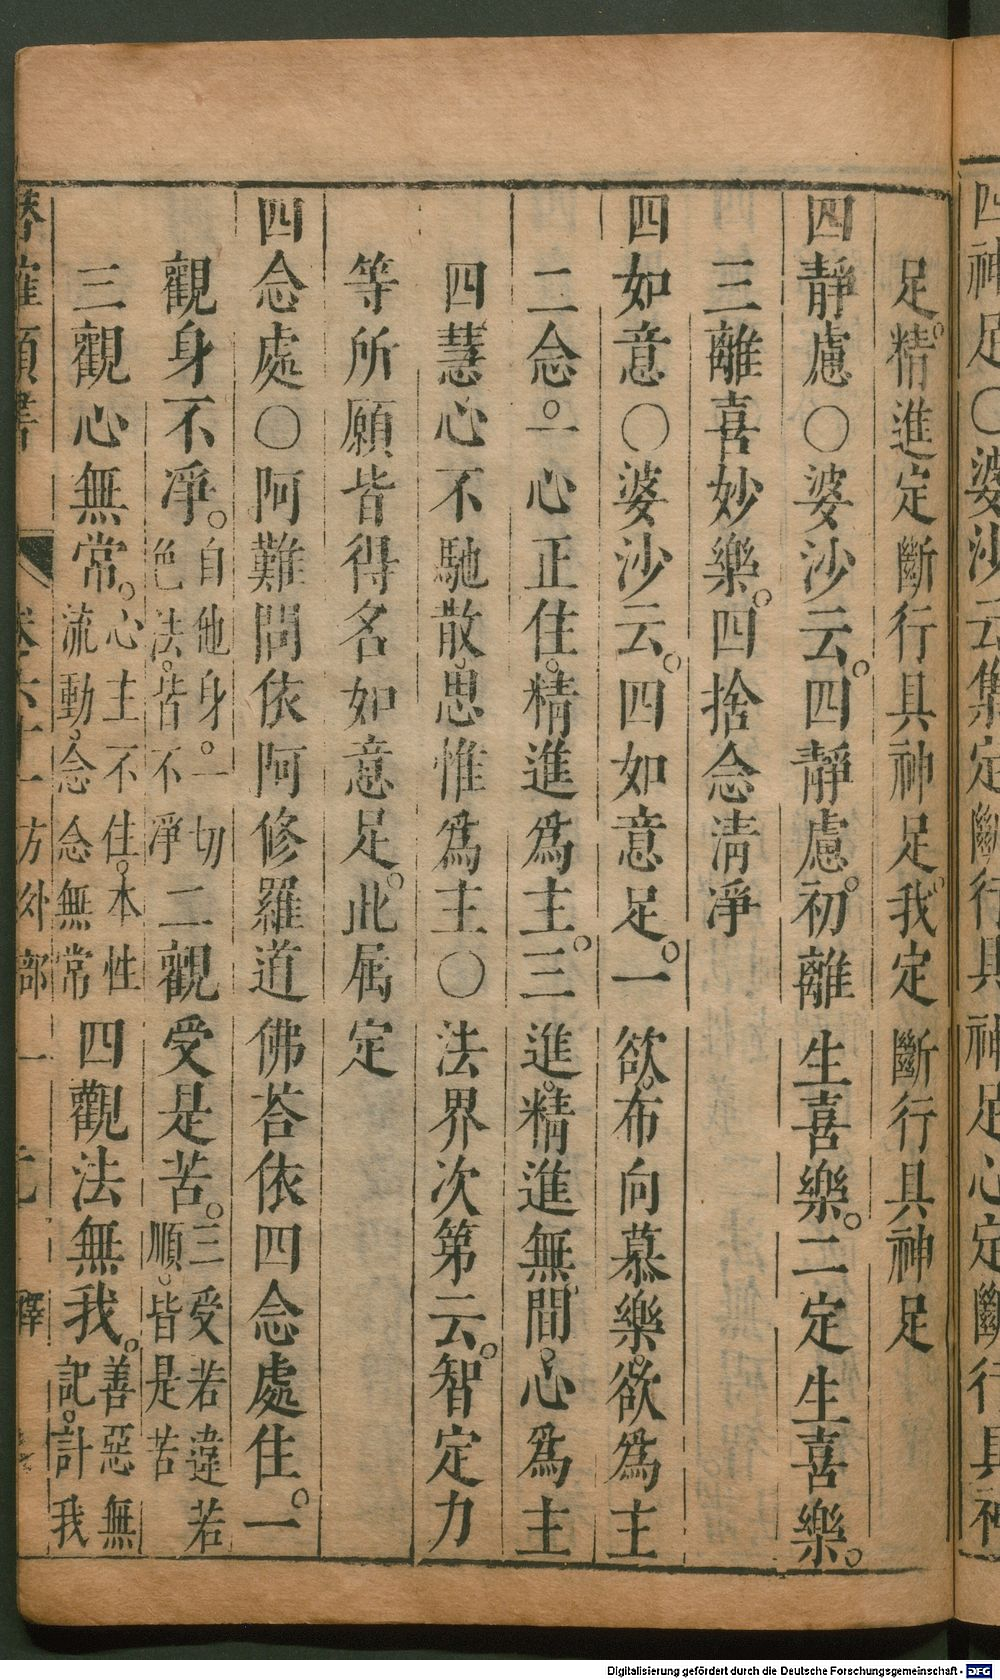 四神足○婆沙云集定斷行具神足心定斷行具神
足。精進定斷行具神足。我定斷行具神足
四靜慮○婆沙云。四靜慮。初離生喜樂。二定生喜樂。
三離喜妙樂。四捨念清淨
四如意○婆沙云。四如意足。一欲。布向慕樂。欲爲主
二念。一心正住。精進爲主。三進。精進無間。心爲主
四慧心不馳散。思惟爲主○法界次第云。智定力
等所願皆得名如意足。此属定
四念處○阿難問依阿修羅道佛荅依四念處住。一
觀身不淨。自他身。一切色法。皆不淨二觀受是苦。三受若違若順。皆是苦
三觀心無常。心主不住。本性流動。念念無常四觀法無我。善惡無記。計我
卷六十一 方外部一 釋
Digitalisierung gefördert durch die Deutsche Forschungsgemeinschaft - DFG